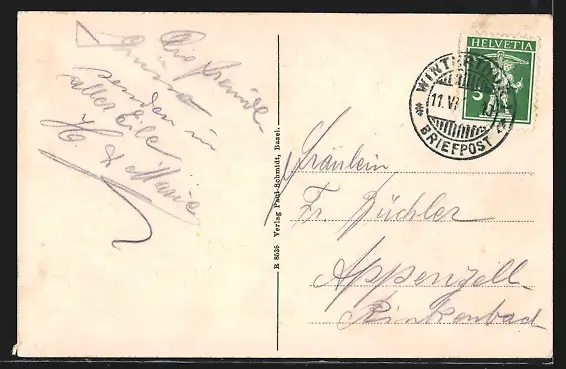 Die Freunde
senden in
aller Eile
H. & Marie
R 8535 Verlag Paul Schmidt, Basel.
HELVETIA
5
WINTERTHUR
11.VI
BRIEFPOST
Fräulein
Fr. Büchler
Appenzell
Rinkenbad